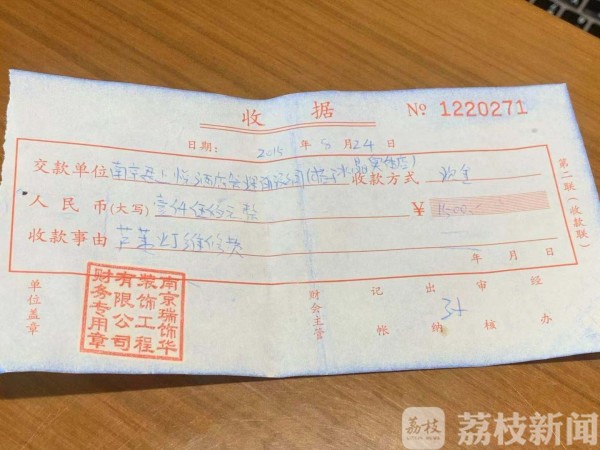 收 据
№ 1220271
日期： 2015 年 5 月 24 日
交款单位 南京 收款方式 现金
人民币(大写) 壹仟伍佰元整 ¥ 1500.00
收款事由 灯维修费
年 月 日
第二联（收款联）
单位盖章
南京瑞饰华装饰工程有限公司财务专用章
财会主管
记账
出纳
审核
经办
荔枝
荔枝新闻